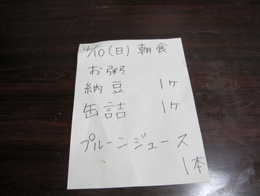 12/10(日) 朝食
お粥
納豆 1ケ
缶詰 1ケ
プルーンジュース
1本